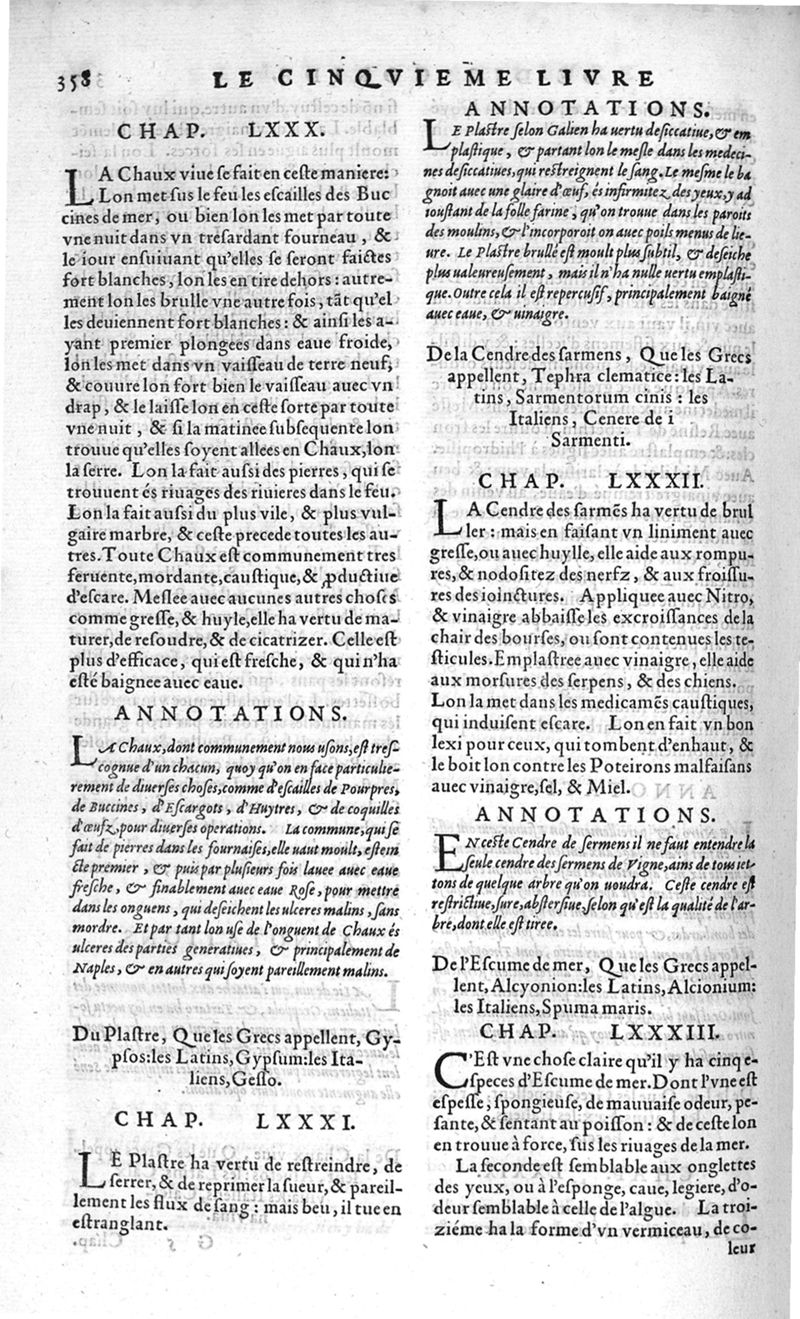 358 LE CINQVIEME LIVRE
CHAP. LXXX.
LA Chaux viue se fait en ceste maniere:
Lon met sus le feu les escailles des Buc
cines de mer, ou bien lon les met par toute
vne nuit dans vn tresardant fourneau, &
le iour ensuiuant qu'elles se seront faictes
fort blanches, lon les en tire dehors: autre-
ment lon les brulle vne autre fois, tāt qu'el
les deuiennent fort blanches: & ainsi les a-
yant premier plongees dans eaue froide,
lon les met dans vn vaisseau de terre neuf,
& couure lon fort bien le vaisseau auec vn
drap, & le laisse lon en ceste sorte par toute
vne nuit, & si la matinee subsequente lon
trouue qu'elles soyent allees en Chaux, lon
la serre. Lon la fait aussi des pierres, qui se
trouuent és riuages des riuieres dans le feu.
Lon la fait aussi du plus vile, & plus vul-
gaire marbre, & ceste precede toutes les au-
tres. Toute Chaux est communement tres
feruente, mordante, caustique, & ꝓductiue
d'escare. Meslee auec aucunes autres choses
comme gresse, & huyle, elle ha vertu de ma-
turer, de resoudre, & de cicatrizer. Celle est
plus d'efficace, qui est fresche, & qui n'ha
esté baignee auec eaue.
ANNOTATIONS.
LA Chaux, dont communement nous usons, est tres-
cognue d'un chacun, quoy qu'on en face particulie-
rement de diuerses choses, comme d'escailles de Pourpres,
de Buccines, d'Escargots, d'Huytres, & de coquilles
d'œufz, pour diuerses operations. La commune, qui se
fait de pierres dans les fournaises, elle uaut moult, estein
cte premier, & puis par plusieurs fois lauee auec eaue
fresche, & finablement auec eaue Rose, pour mettre
dans les onguens, qui deseichent les ulceres malins, sans
mordre. Et par tant lon use de l'onguent de Chaux és
ulceres des parties generatiues, & principalement de
Naples, & en autres qui soyent pareillement malins.
Du Plastre, Que les Grecs appellent, Gy-
psos: les Latins, Gypsum: les Ita-
liens, Gesso.
CHAP. LXXXI.
LE Plastre ha vertu de restreindre, de
serrer, & de reprimer la sueur, & pareil-
lement les flux de sang: mais beu, il tue en
estranglant.
ANNOTATIONS.
LE Plastre selon Galien ha uertu desiccatiue, & em
plastique, & partant lon le mesle dans les medeci
nes desiccatiues, qui restreignent le sang. Le mesme le ba
gnoit auec une glaire d'œuf, és infirmitez des yeux, y ad
ioustant de la folle farine, qu'on trouue dans les paroits
des moulins, & l'incorporoit on auec poils menus de lie-
ure. Le Plastre brullé est moult plus subtil, & deseiche
plus ualeureusement, mais il n'ha nulle uertu emplasti-
que. Outre cela il est repercusif, principalement baigné
auec eaue, & uinaigre.
De la Cendre des sarmens, Que les Grecs
appellent, Tephra clematice: les La-
tins, Sarmentorum cinis: les
Italiens, Cenere de i
Sarmenti.
CHAP. LXXXII.
LA Cendre des sarmēs ha vertu de brul
ler: mais en faisant vn liniment auec
gresse, ou auec huylle, elle aide aux rompu-
res, & nodositez des nerfz, & aux froissu-
res des ioinctures. Appliquee auec Nitro,
& vinaigre abbaisse les excroissances de la
chair des bourses, ou sont contenues les te-
sticules. Emplastree auec vinaigre, elle aide
aux morsures des serpens, & des chiens.
Lon la met dans les medicamēs caustiques,
qui induisent escare. Lon en fait vn bon
lexi pour ceux, qui tombent d'enhaut, &
le boit lon contre les Poteirons malfaisans
auec vinaigre, sel, & Miel.
ANNOTATIONS.
EN ceste Cendre de sermens il ne faut entendre la
seule cendre des sermens de Vigne, ains de tous iet-
tons de quelque arbre qu'on uoudra. Ceste cendre est
restrictiue, sure, abstersiue, selon qu'est la qualité de l'ar-
bre, dont elle est tiree.
De l'Escume de mer, Que les Grecs appel-
lent, Alcyonion: les Latins, Alcionium:
les Italiens, Spuma maris.
CHAP. LXXXIII.
C'Est vne chose claire qu'il y ha cinq e-
speces d'Escume de mer. Dont l'vne est
espesse, spongieuse, de mauuaise odeur, pe-
sante, & sentant au poisson: & de ceste lon
en trouue à force, sus les riuages de la mer.
La seconde est semblable aux onglettes
des yeux, ou à l'esponge, caue, legiere, d'o-
deur semblable à celle de l'algue. La troi-
ziéme ha la forme d'vn vermiceau, de co-
leur